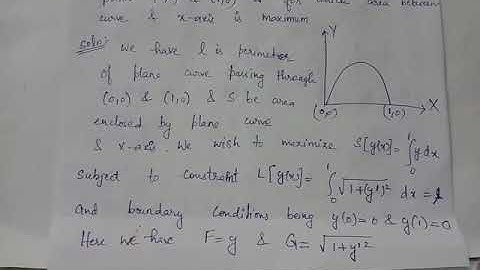 curve & x-axis is maximum
Soln: we have l is perimeter
of plane curve passing through
(0,0) & (1,0) & S be area
enclosed by plane curve
& x-axis. We wish to maximize S[y(x)] = ∫₀¹ y dx
Subject to constraint L[y(x)] = ∫₀¹ √1+(y')² dx = l
And boundary conditions being y(0)=0 & y(1)=0
Here we have F=y & G= √1+y'²
Y
(0,0)
(1,0)
X